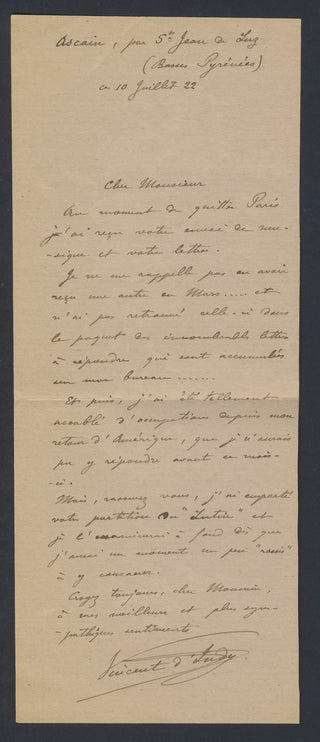 Ascain, par St Jean de Luz
(Basses Pyrénées)
ce 10 Juillet 22
Cher Monsieur
Au moment de quitter Paris
j'ai reçu votre envoi de mu-
-sique et votre lettre.
Je ne me rappelle pas en avoir
reçu une autre en Mars..... et
n'ai pas retrouvé celle-ci dans
le paquet des innombrables lettres
à répondre qui sont accumulées
sur mon bureau.......
Et puis, j'ai été tellement
accablé d'occupations depuis mon
retour d'Amérique, que je n'aurais
pu y répondre avant ce mois-
-ci.
Mais, rassurez vous, j'ai emporté
votre partition du " " et
je l'examinerai à fond dès que
j'aurai un moment un peu "rassis"
à y consacrer.
Croyez toujours, cher Monsieur,
à mes meilleurs et plus sym-
-pathiques sentiments
Vincent d'Indy